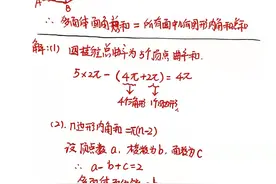 A B
∴ 多面体面角和 = 所有面中几何图形内角和总和
解:(1) 四棱锥总曲率为5个顶点曲率和.
5×2π - (4π+2π) = 4π
4个三角形 1个四边形
(2). n边形内角和=π(n-2)
设顶点数 a, 棱数为b, 面数为C
∴ a-b+c=2